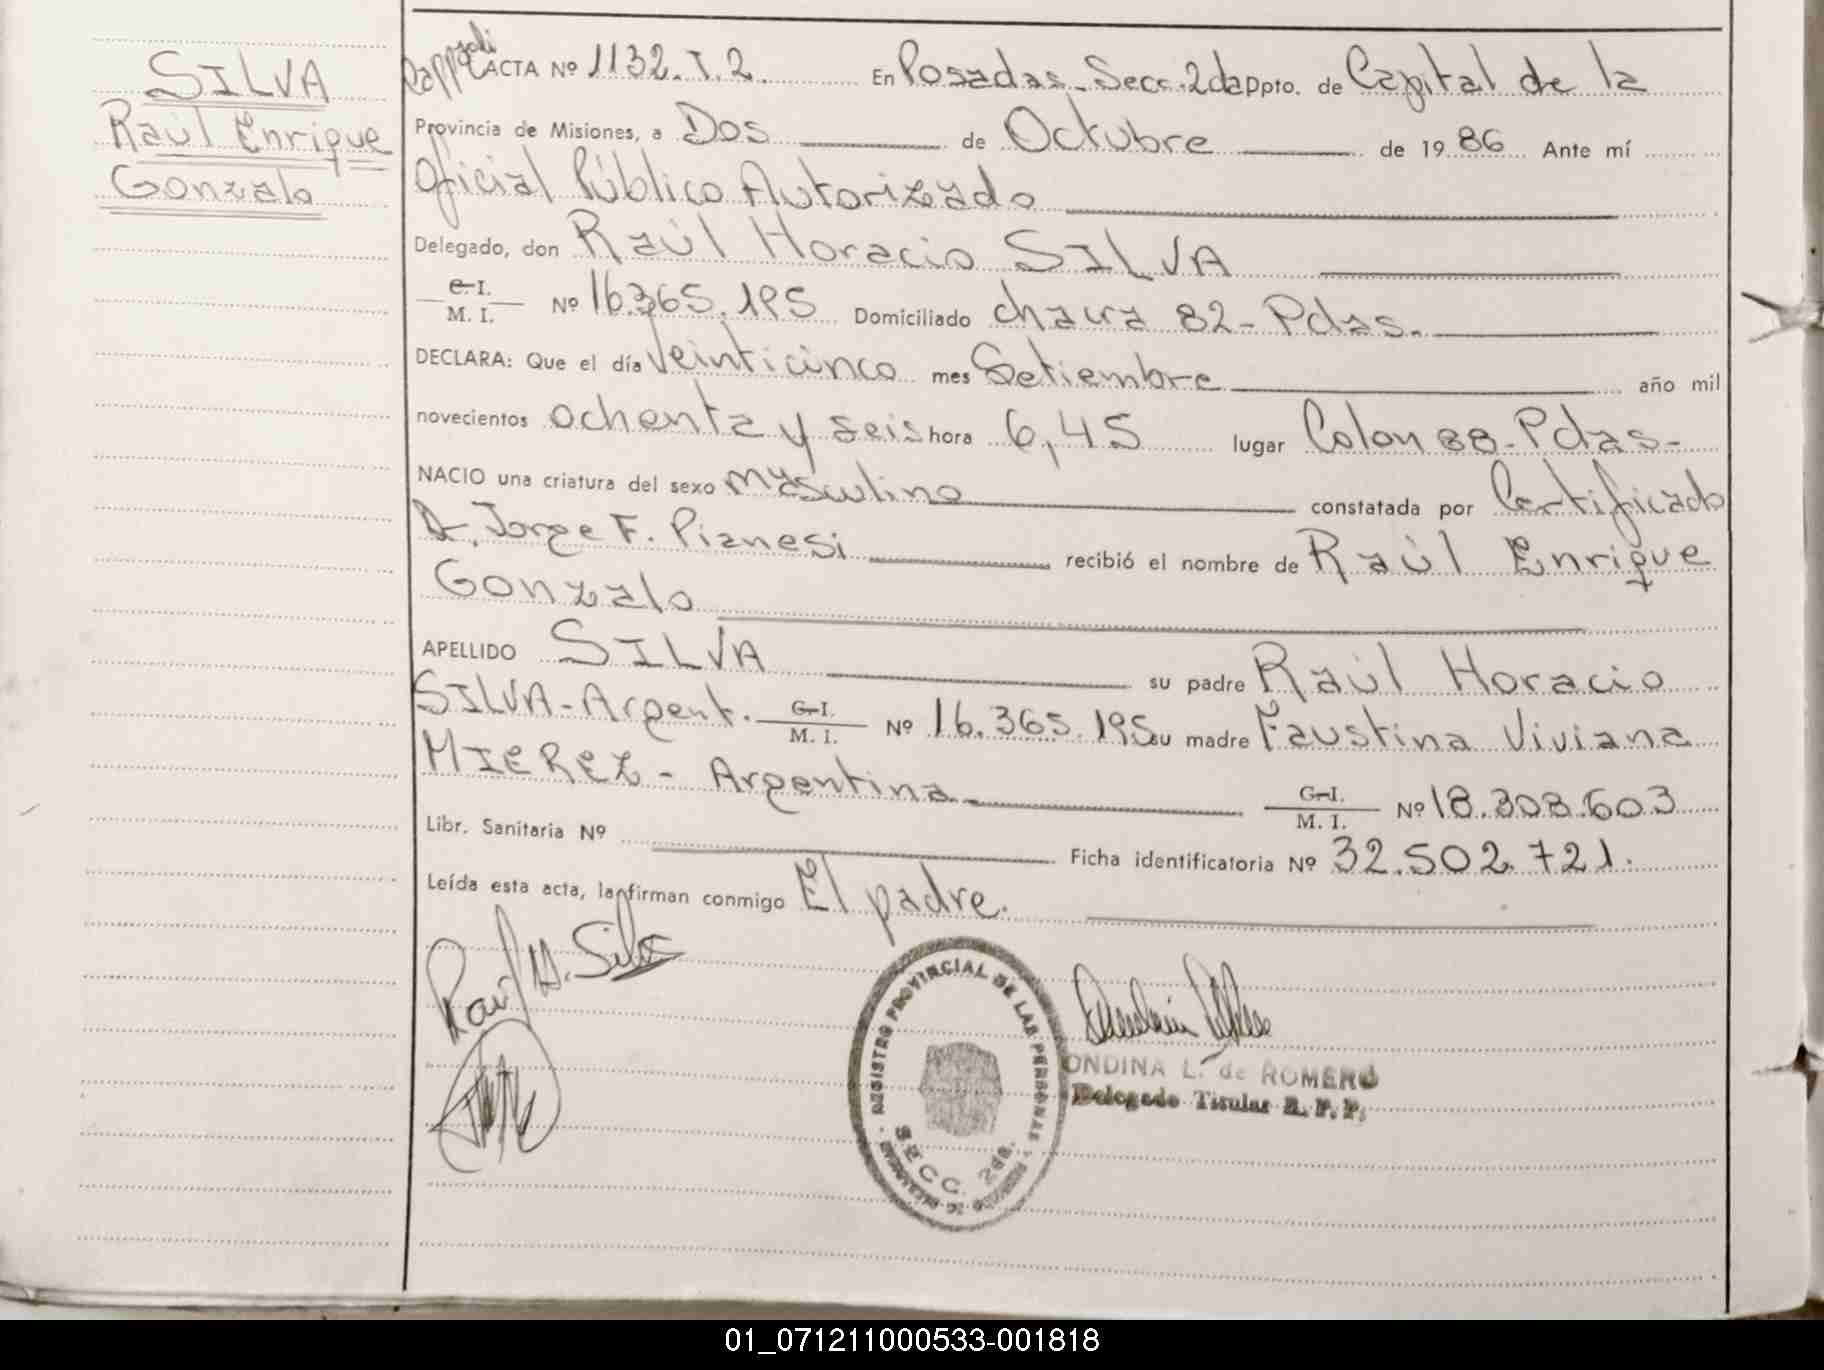 SILVA
Raúl Enrique
Gonzalo
ACTA Nº 1132. T. 2. En Posadas. Secc. 2da Dpto. de Capital de la
Provincia de Misiones, a Dos de Octubre de 1986 Ante mí
Oficial Público Autorizado
Delegado, don Raúl Horacio SILVA
C. I.
M. I. Nº 16.365.195 Domiciliado chacra 82 - Pdas.
DECLARA: Que el día veinticinco mes Setiembre año mil
novecientos ochenta y seis hora 6,45 lugar Colon 88 - Pdas -
NACIO una criatura del sexo masculino constatada por Certificado
Dr. Jorge F. Pianesi recibió el nombre de Raúl Enrique
Gonzalo
APELLIDO SILVA su padre Raúl Horacio
SILVA - Argent. C. I.
M. I. Nº 16.365.195 su madre Faustina Viviana
MIEREZ - Argentina C. I.
M. I. Nº 18.308.603
Libr. Sanitaria Nº Ficha identificatoria Nº 32.502.721.
Leída esta acta, la firman conmigo El padre.
Raúl H. Silva
REGISTRO PROVINCIAL DE LAS PERSONAS
SECC. 2da.
ONDINA L. de ROMERO
Delegado Titular R. P. P.
01_071211000533-001818